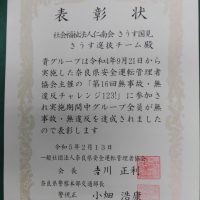 表彰状
社会福祉法人仁南会 きうす国見
きうす選抜チーム殿
貴グループは令和4年9月21日から
実施した奈良県安全運転管理者
協会主催の「第16回無事故・無
違反チャレンジ123!」に参加さ
れ実施期間中グループ全員が無
事故・無違反を達成されましたの
で表彰します
令和5年2月13日
一般社団法人奈良県安全運転管理者協会
会長 吉川正利
奈良県警察本部交通部長
警視正 小畑浩康